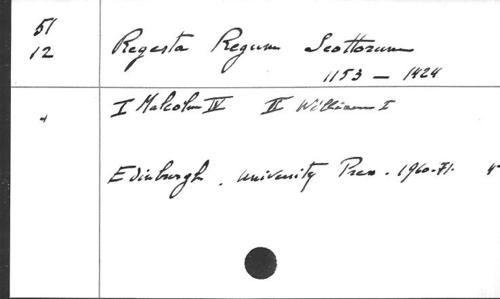 51
12
Regesta Regum Scottorum
1153 - 1424
I Malcolm IV II William I
Edinburgh. University Press. 1960-71.